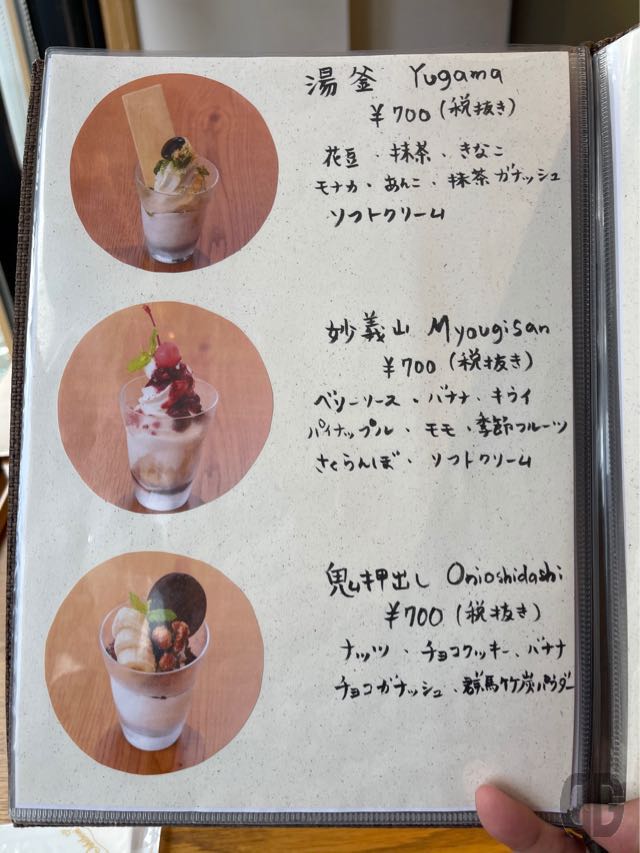 湯釜 Yugama
¥700 (税抜き)
花豆・抹茶・きなこ
モナカ・あんこ・抹茶ガナッシュ
ソフトクリーム
妙義山 Myougisan
¥700 (税抜き)
ベリーソース・バナナ・キウイ
パイナップル・モモ・季節フルーツ
さくらんぼ・ソフトクリーム
鬼押出し Onioshidashi
¥700 (税抜き)
ナッツ・チョコクッキー、バナナ
チョコガナッシュ、群馬竹炭パウダー